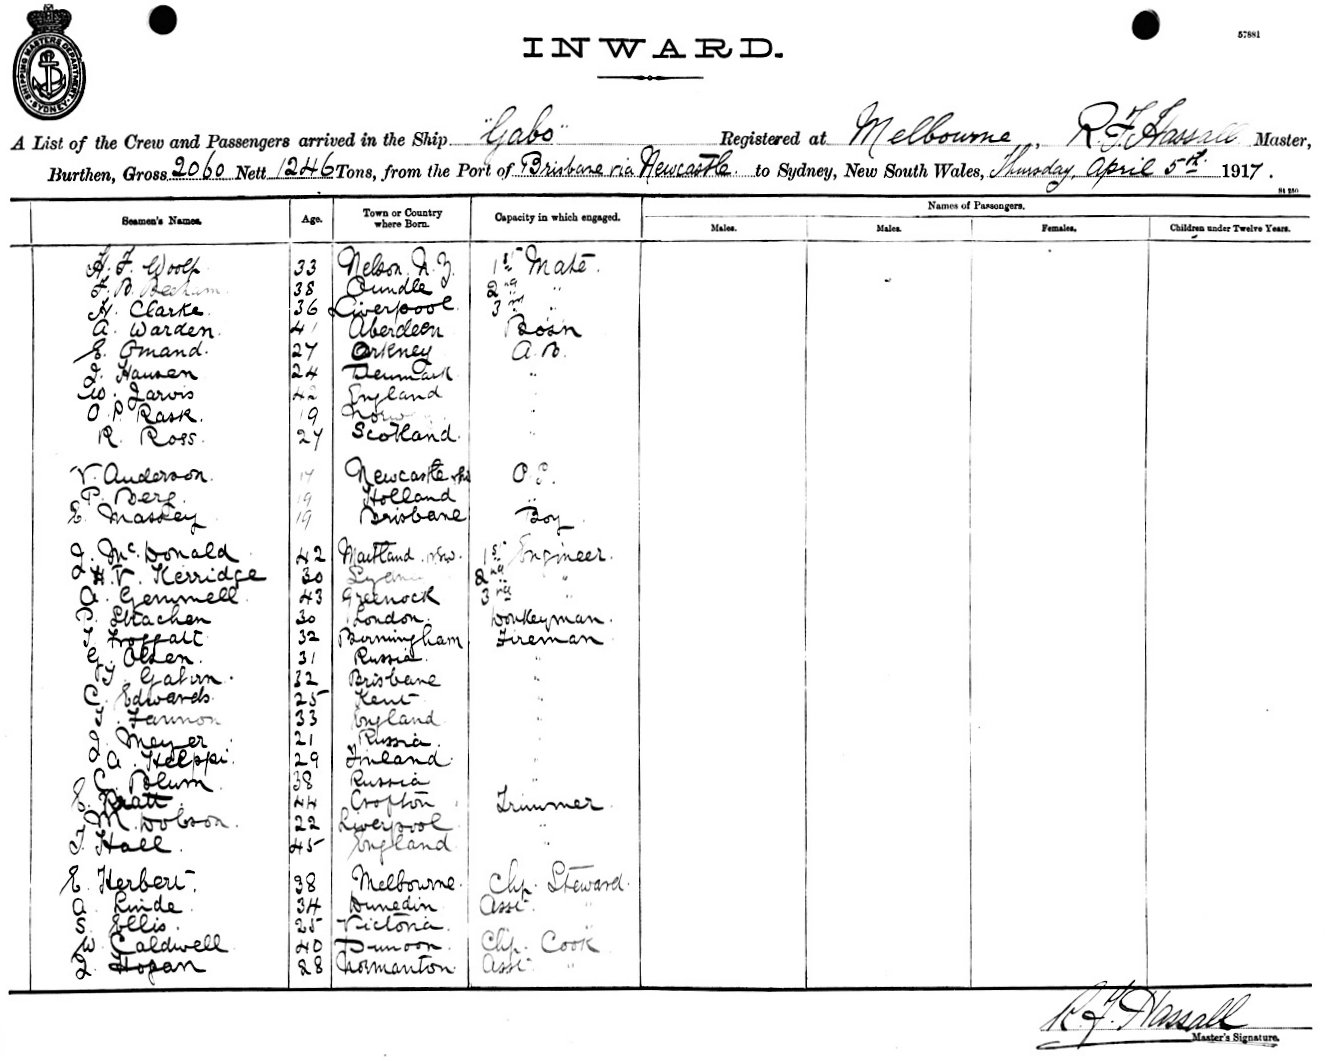 SHIPPING MASTERS DEPARTMENT, SYDNEY
57881
INWARD.
A List of the Crew and Passengers arrived in the Ship "Gabo" Registered at Melbourne, R. F. Hassall Master,
Burthen, Gross 2060 Nett 1246 Tons, from the Port of Brisbane via Newcastle to Sydney, New South Wales, Thursday, April 5th 1917.
Seamen's Names. Age. Town or Country where Born. Capacity in which engaged. Names of Passengers.
Males. Males. Females. Children under Twelve Years.
H. F. Woolf 33 Nelson N.Z. 1st Mate.
F. B. Beecham 38 Oundle 2nd "
H. Clarke 36 Liverpool 3rd "
A. Warden 41 Aberdeen Bosn
E. Omand 27 Orkney A.B.
J. Hansen 24 Denmark "
W. Jarvis 42 England "
O. P. Rask 19 Norway "
R. Ross 27 Scotland "
V. Anderson Newcastle O.S.
P. Berg 19 Holland "
E. Maskey 19 Brisbane Boy
J. McDonald 42 Maitland NSW. 1st Engineer
H. V. Kerridge 30 2nd "
A. Gemmell 43 Greenock 3rd "
P. Strachen 30 London Donkeyman.
T. Froggatt 32 Birmingham Fireman
G. Olsen 31 Russia "
T. Gavin 32 Brisbane "
C. Edwards 25 Kent "
T. Fannon 33 England "
J. Meyer 21 Russia "
A. Helppi 29 Finland "
C. Blum 38 Russia "
E. Pratt 44 Crofton Trimmer
M. Dobson 22 Liverpool "
T. Hall 45 England "
E. Herbert 38 Melbourne Chf. Steward
A. Linde 34 Dunedin Asst. "
S. Ellis 25 Victoria
W. Caldwell 40 Dunoon Chf. Cook
J. Hogan 28 Normanton Asst. "
R. F. Hassall
Master's Signature.